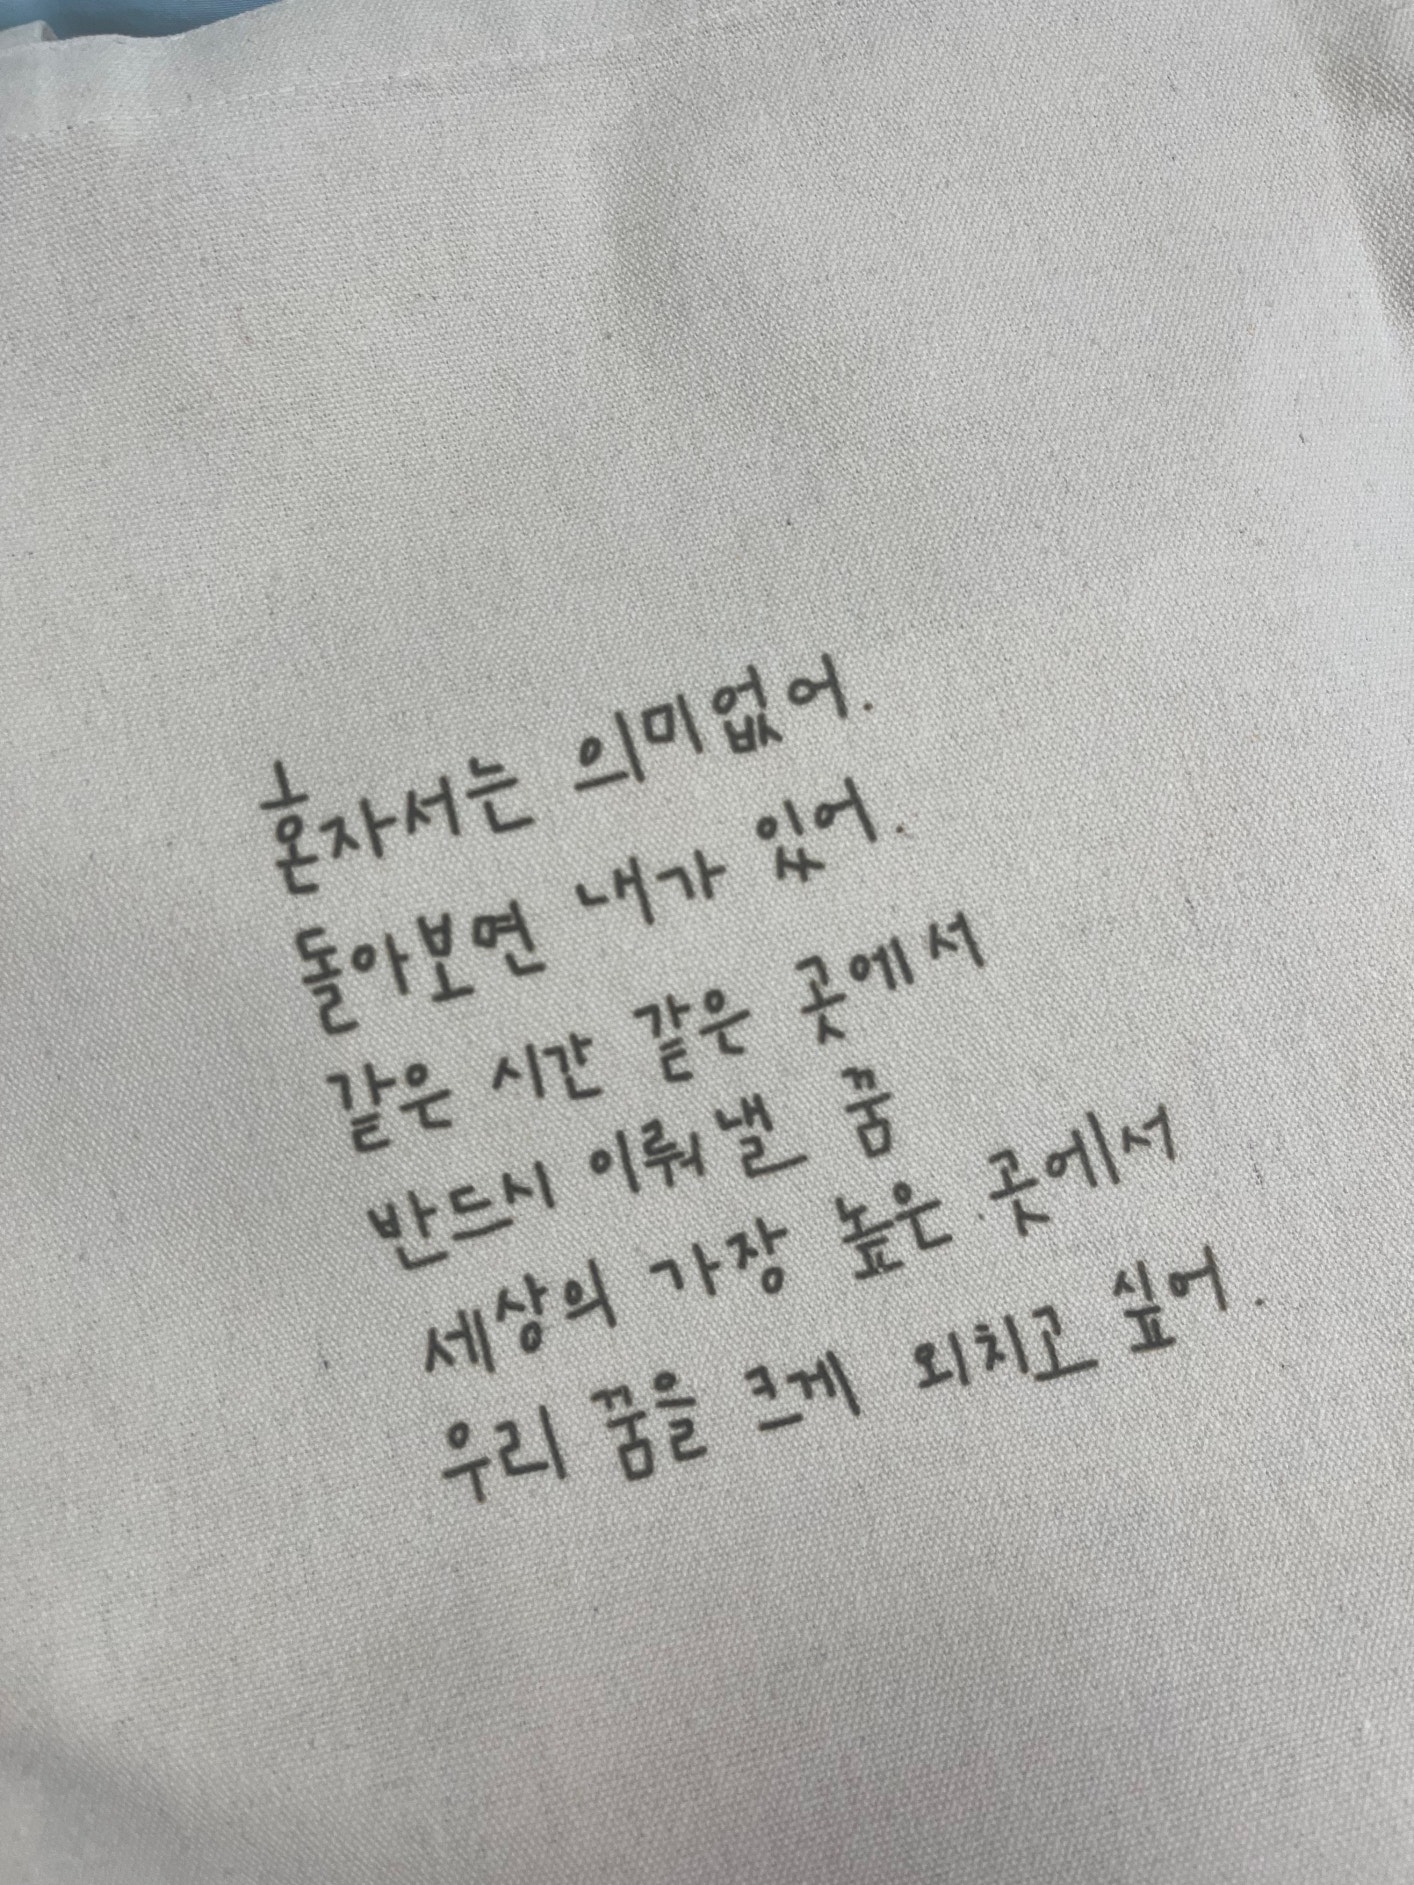 혼자서는 의미없어.
돌아보면 내가 있어.
같은 시간 같은 곳에서
반드시 이뤄낼 꿈
세상의 가장 높은 곳에서
우리 꿈을 크게 외치고 싶어.